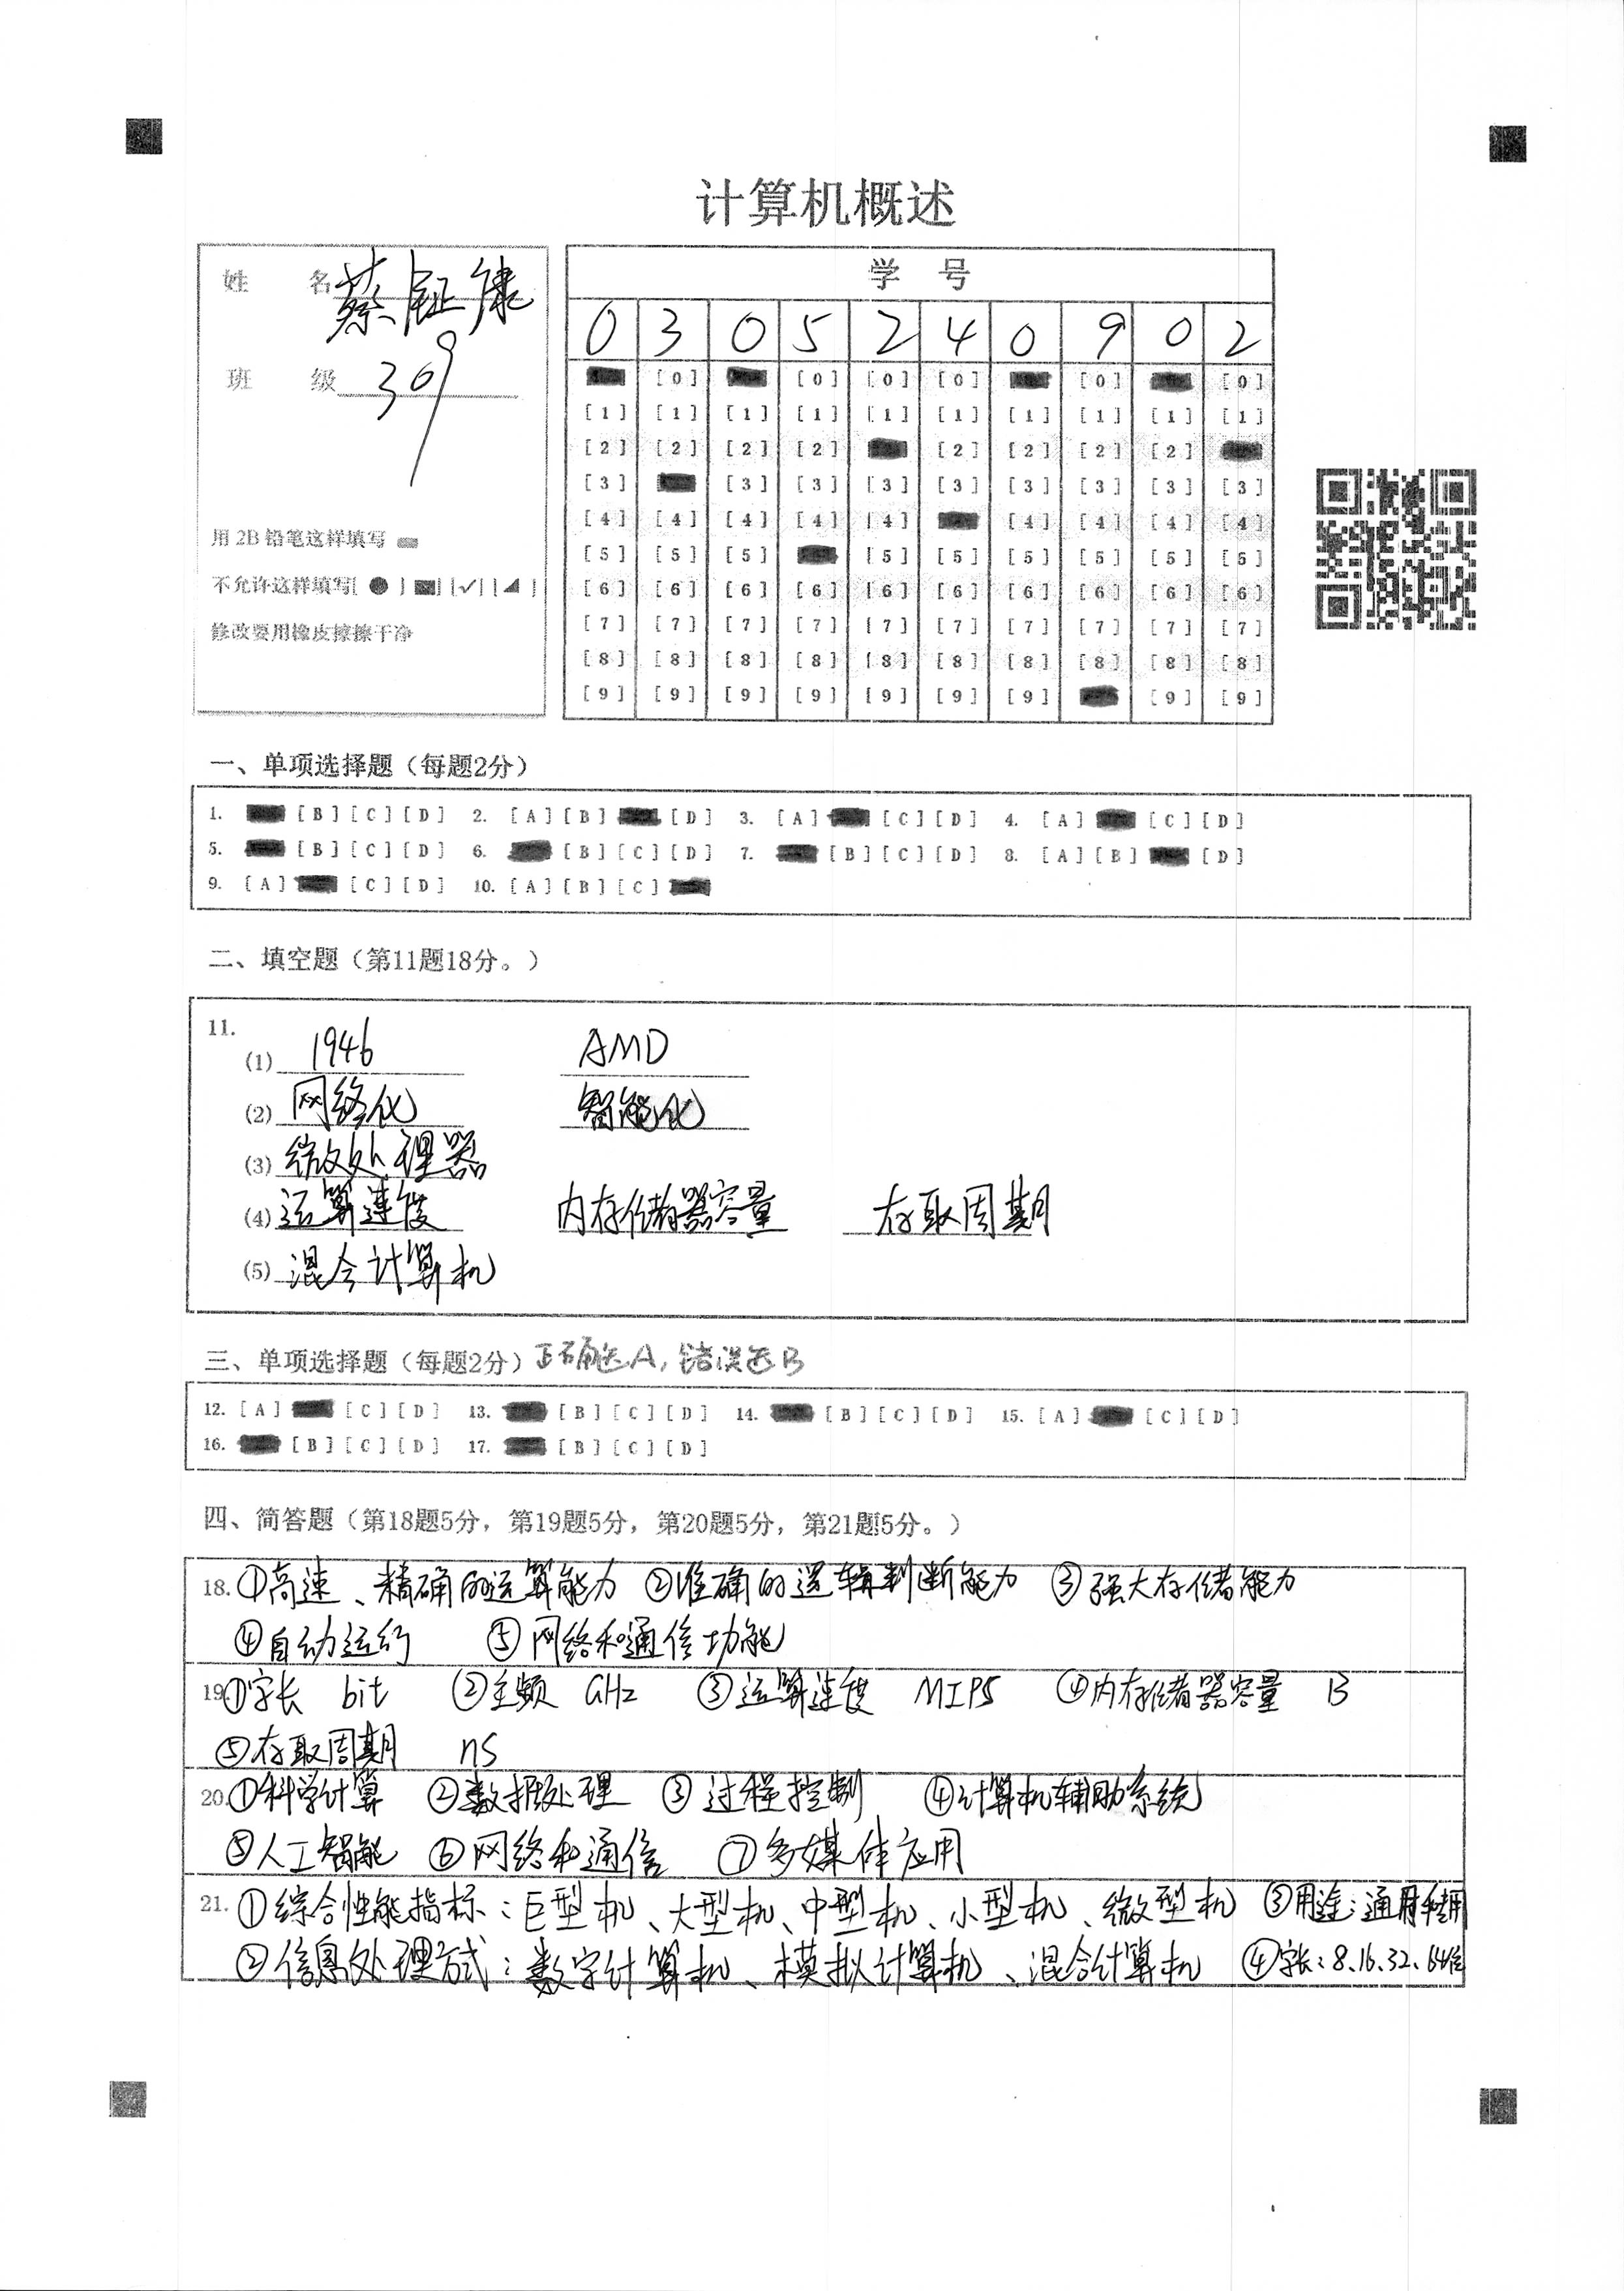 计算机概述
姓 名 蔡钲康
班 级 309
用 2B 铅笔这样填写
不允许这样填写[ ● ] [ ] [✓] [◢ ]
修改要用橡皮擦擦干净
学 号
0 3 0 5 2 4 0 9 0 2
[0] [0] [0] [0] [0] [0]
[1] [1] [1] [1] [1] [1] [1] [1] [1] [1]
[2] [2] [2] [2] [2] [2] [2] [2]
[3] [3] [3] [3] [3] [3] [3] [3] [3]
[4] [4] [4] [4] [4] [4] [4] [4] [4]
[5] [5] [5] [5] [5] [5] [5] [5] [5]
[6] [6] [6] [6] [6] [6] [6] [6] [6] [6]
[7] [7] [7] [7] [7] [7] [7] [7] [7] [7]
[8] [8] [8] [8] [8] [8] [8] [8] [8] [8]
[9] [9] [9] [9] [9] [9] [9] [9] [9]
一、单项选择题（每题2分）
1. [B] [C] [D] 2. [A] [B] [D] 3. [A] [C] [D] 4. [A] [C] [D]
5. [B] [C] [D] 6. [B] [C] [D] 7. [B] [C] [D] 8. [A] [B] [D]
9. [A] [C] [D] 10. [A] [B] [C]
二、填空题（第11题18分。）
11.
(1) 1946 AMD
(2) 网络化 智能化
(3) 微处理器
(4) 运算速度 内存储器容量 存取周期
(5) 混合计算机
三、单项选择题（每题2分）正确选A，错误选B
12. [A] [C] [D] 13. [B] [C] [D] 14. [B] [C] [D] 15. [A] [C] [D]
16. [B] [C] [D] 17. [B] [C] [D]
四、简答题（第18题5分，第19题5分，第20题5分，第21题5分。）
18. ①高速、精确的运算能力 ②准确的逻辑判断能力 ③强大存储能力
④自动运行 ⑤网络和通信功能
19 ①字长 bit ②主频 GHz ③运算速度 MIPS ④内存储器容量 B
⑤存取周期 ns
20. ①科学计算 ②数据处理 ③过程控制 ④计算机辅助系统
⑤人工智能 ⑥网络和通信 ⑦多媒体应用
21. ①综合性能指标：巨型机、大型机、中型机、小型机、微型机 ③用途：通用和专用
②信息处理方式：数字计算机、模拟计算机、混合计算机 ④字长：8、16、32、64位